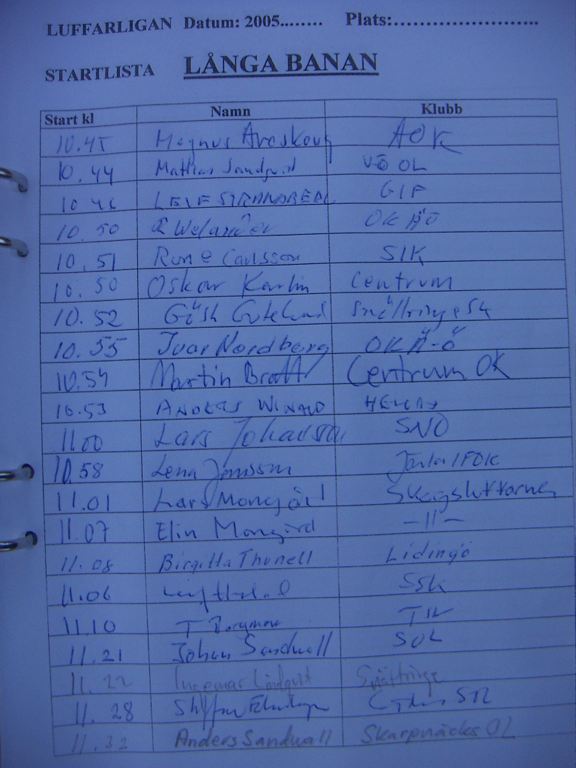 LUFFARLIGAN Datum: 2005......... Plats:........................
STARTLISTA LÅNGA BANAN
Start kl Namn Klubb
10.45 Magnus AOK
10.44 Mathias OL
10.46 LEIF STRANDBERG GIF
10.50 OK ÄÖ
10.51 Rune Carlsson SIK
10.50 Oskar Karlin Centrum
10.52 Gösta Snättringe SK
10.55 Ivar Nordberg OK Ä-Ö
10.54 Martin Bratt Centrum OK
10.53 ANDERS HELLAS
11.00 Lars Johansson SNO
10.58 Lena Jansson Järla IFOK
11.01 Lars Mongård Skogsluffarna
11.07 Elin Mongård -11-
11.08 Birgitta Thunell Lidingö
11.06 SSK
11.10 T Bergman
11.21 Johan Sandwall SOL
11.22 Ingemar Lindqvist Snättringe
11.28 Staffan
11.32 Anders Sandwall Skarpnäcks OL